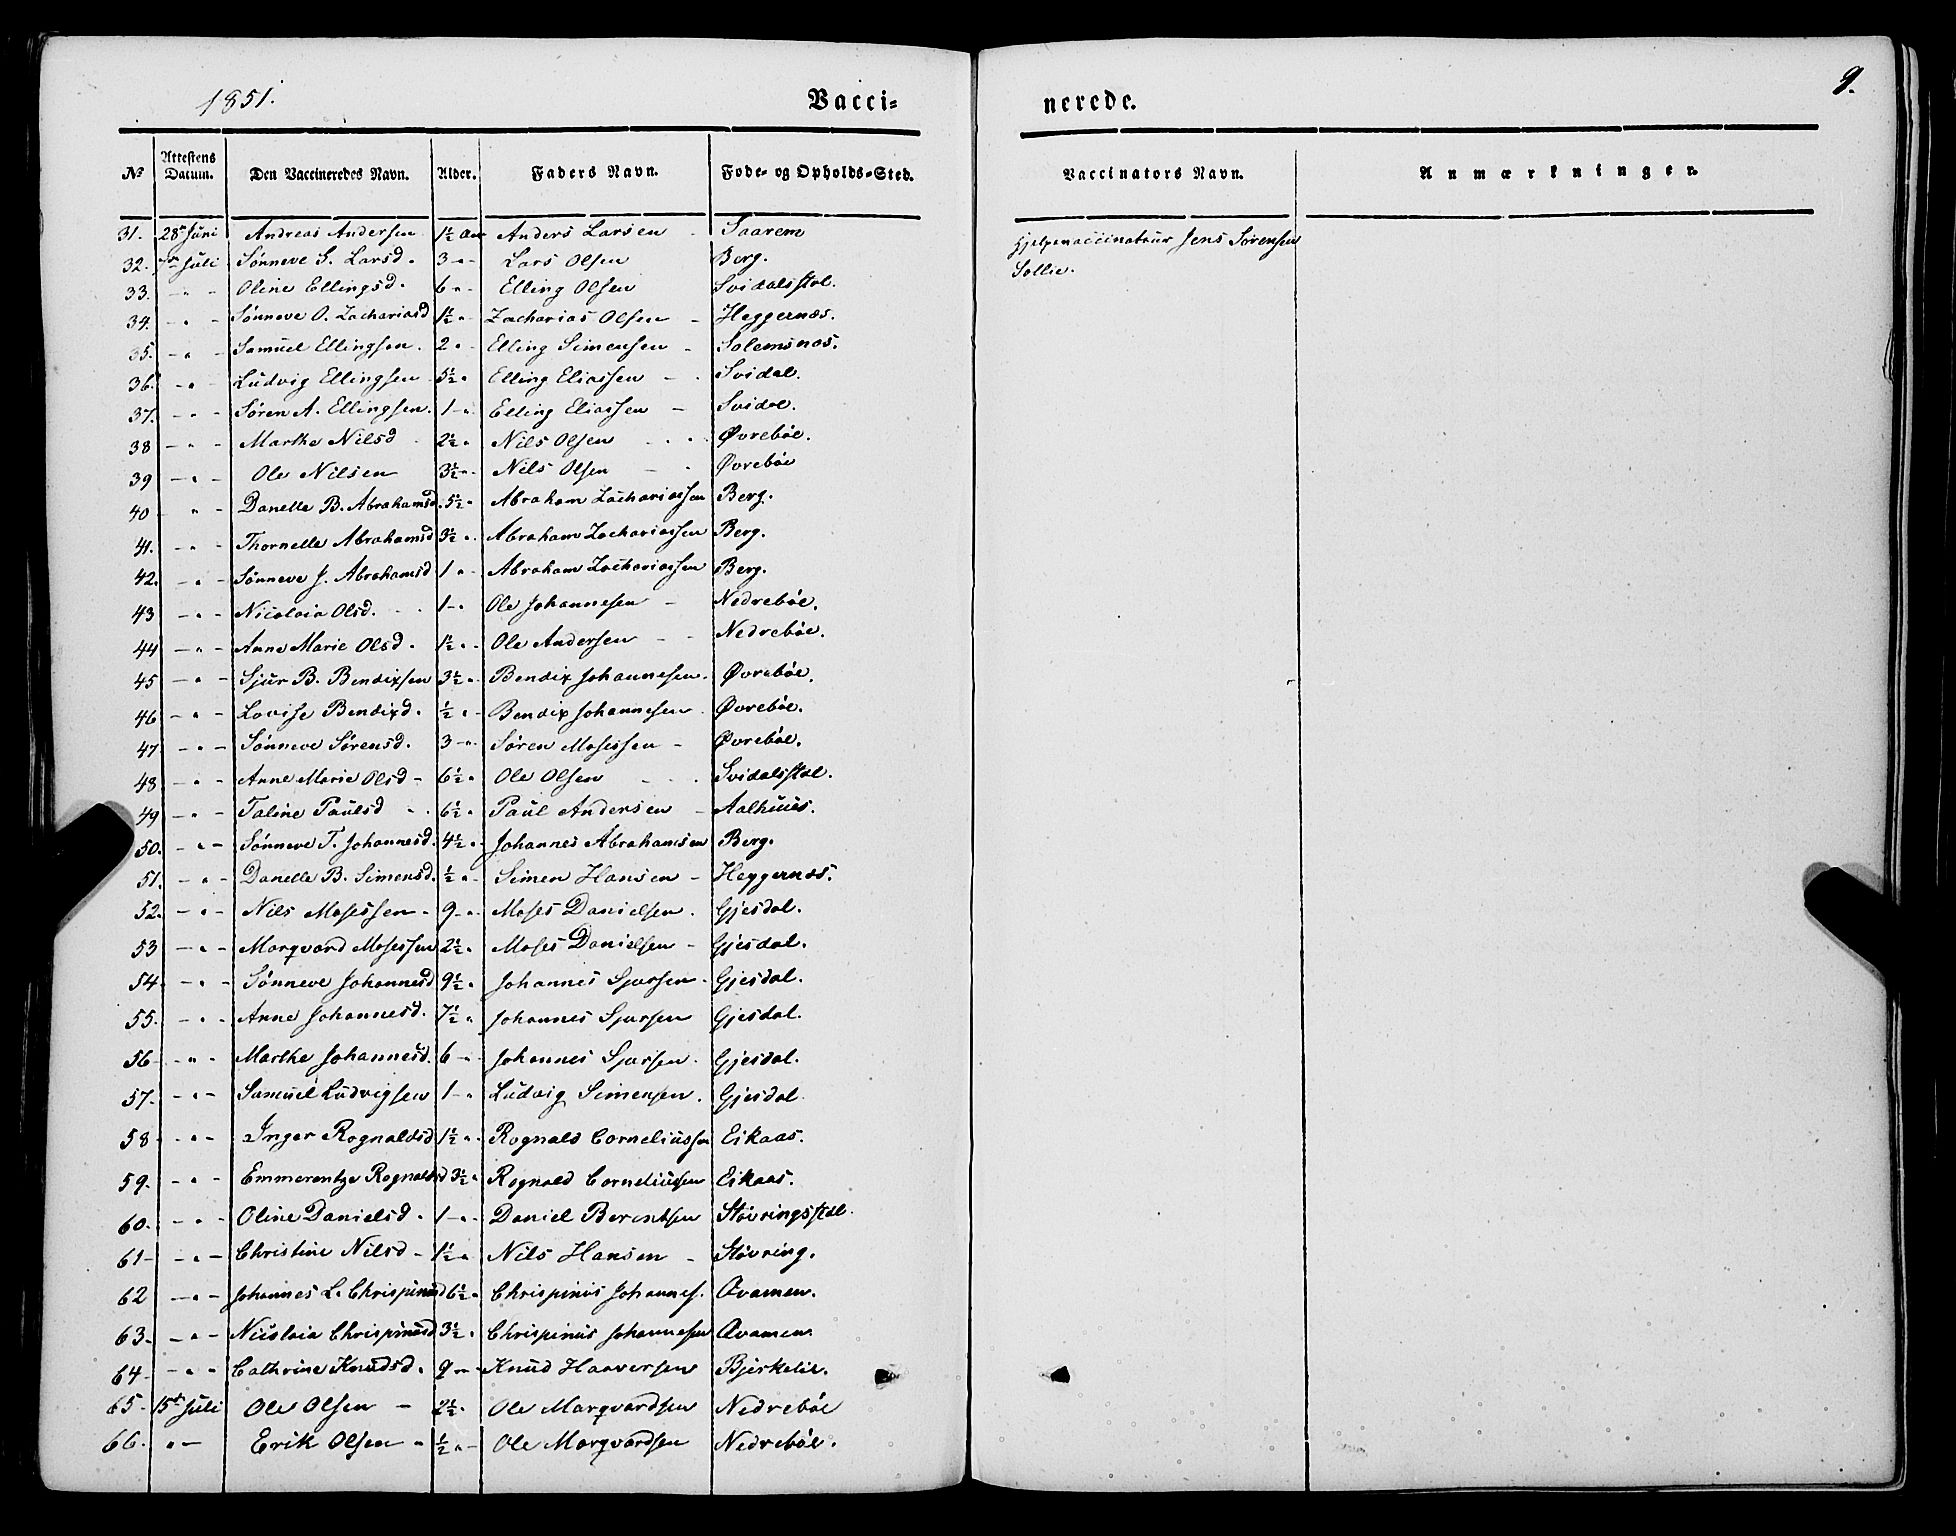 1851.
Vacci-
nerede.
9.
No Attestens Datum. Den Vaccineredes Navn. Alder. Faders Navn. Føde- og Opholds-Sted. Vaccinators Navn. Anmærkninger.
31. 28de Juni Andreas Andersen 1½ Aar Anders Larsen - Saarem Hjelpevaccinateur Jens Sørensen
Sollie.
32. 7de Juli Sønneve S. Larsd. 3 -"- Lars Olsen Berg.
33. -"- Oline Ellingsd. 6 -"- Elling Olsen Svidalsstøl.
34. -"- Sønneve O. Zachariasd 1½ " Zacharias Olsen - Heggernæs.
35. -"- Samuel Ellingsen. 2 " Elling Simensen - Solemsnæs.
36. -"- Ludvig Ellingsen 5½ " Elling Eliassen - Svidal.
37. -"- Søren A. Ellingsen. 1 -"- Elling Eliassen - Svidal.
38 -"- Marthe Nilsd 2½ " Nils Olsen Øvrebøe.
39 -"- Ole Nilsen 3½ -"- Nils Olsen - Øvrebøe
40 -"- Danelle B. Abrahamsd. 5½ " Abraham Zachariassen Berg.
41. -"- Thornelle Abrahamsd 3½ " Abraham Zachariassen Berg.
42. -"- Sønneve J. Abrahamsd 1 " Abraham Zachariassen Berg.
43 -"- Nicolaia Olsd. 1 -"- Ole Johannesen - Nedrebøe.
44 -"- Anne Marie Olsd. 1½ " Ole Andersen - Nedrebøe.
45 -"- Sjur B. Bendixsen 3½ " Bendix Johannesen. Øvrebøe.
46 -"- Lovise Bendixd. ½ " Bendix Johannesen. Øvrebøe.
47 -"- Sønneve Sørensd. 3 -"- Søren Mosessen - Øvrebøe.
48 -"- Anne Marie Olsd - 6½ " Ole Olsen Svidalsstøl.
49 -"- Taline Paulsd 6½ " Paul Andersen - Aalhuus.
50. -"- Sønneve T. Johannesd. 4½ " Johannes Abrahamsen Berg.
51. -"- Danelle B. Simensd. ½ " Simen Hansen - Heggernæs.
52. -"- Nils Mosessen - 9 -"- Moses Danielsen. Gjesdal.
53 -"- Marqvard Mosessen 2½ " Moses Danielsen - Gjesdal.
54. -"- Sønneve Johannesd 9½ " Johannes Sjursen - Gjesdal.
55. -"- Anne Johannesd. 7½ " Johannes Sjursen Gjesdal.
56 -"- Marthe Johannesd. 6 -"- Johannes Sjursen. Gjesdal.
57. -"- Samuel Ludvigsen 1 -"- Ludvig Simensen. Gjesdal
58 -"- Inger Rognaldsd 1½ " Rognald Corneliussen Eikaas.
59. -"- Emmerentze Rognaldsd 3½ " Rognald Corneliussen Eikaas.
60. -"- Oline Danielsd. 1 -"- Daniel Berentsen Støvringsstøl.
61 -"- Christine Nilsd - 1½ " Nils Hansen - Støvring.
62 -"- Johannes L. Chrispinusd 6½ " Chrispinus Johannes. Qvamen.
63. -"- Nicolaia Chrispinusd 3½ " Chrispinus Johannesen Qvamen.
64. -"- Cathrine Knudsd. 9 -"- Knud Haaversen Bjerkelie.
65. 15de Juli Ole Olsen - 2½ " Ole Marqvardsen Nedrebøe
66. "- Erik Olsen - ½ " Ole Marqvardsen Nedrebøe.